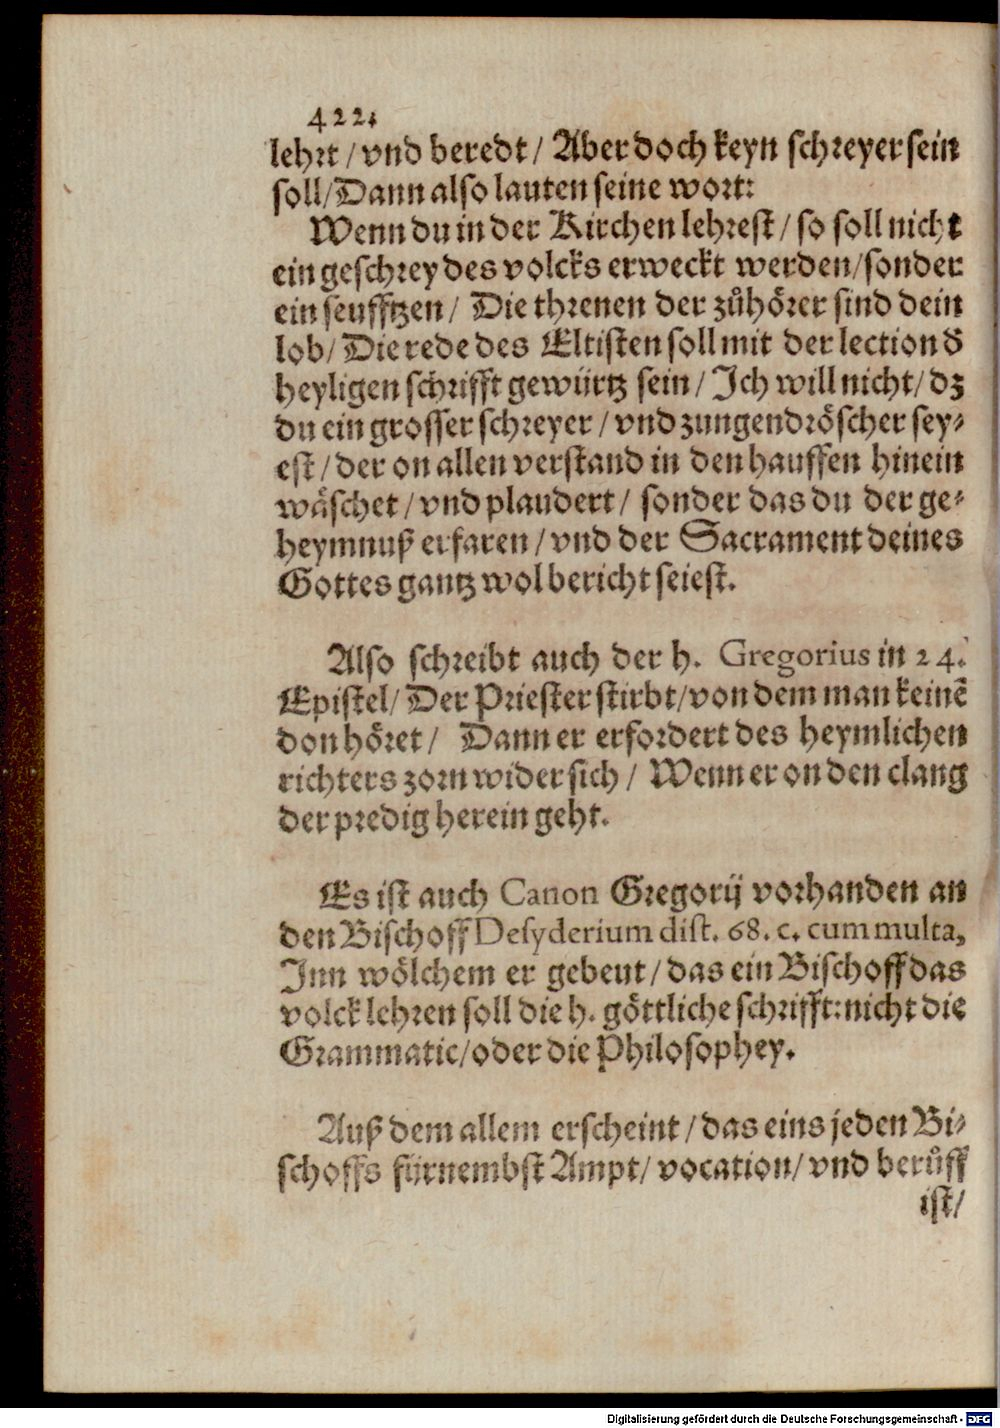 422.
lehrt / vnd beredt / Aber doch keyn schreyer sein
soll / Dann also lauten seine wort:
Wenn du in der Kirchen lehrest / so soll nicht
ein geschrey des volcks erweckt werden / sonder
ein seufftzen / Die threnen der zůhörer sind dein
lob / Die rede des Eltisten soll mit der lection d̕
heyligen schrifft gewürtz sein / Ich will nicht / dz
du ein grosser schreyer / vnd zungendröscher sey⸗
est / der on allen verstand in den hauffen hinein
wäschet / vnd plaudert / sonder das du der ge⸗
heymnuß erfaren / vnd der Sacrament deines
Gottes gantz wol bericht seiest.
Also schreibt auch der h. Gregorius in 24.
Epistel / Der Priester stirbt / von dem man keinē
don höret / Dann er erfordert des heymlichen
richters zorn wider sich / Wenn er on den clang
der predig herein geht.
Es ist auch Canon Gregorij vorhanden an
den Bischoff Desyderium dist. 68. c. cum multa,
Inn wölchem er gebeut / das ein Bischoff das
volck lehren soll die h. göttliche schrifft: nicht die
Grammatic / oder die Philosophey.
Auß dem allem erscheint / das eins jeden Bi⸗
schoffs fürnembst Ampt / vocation / vnd berůff
ist /
Digitalisierung gefördert durch die Deutsche Forschungsgemeinschaft - DFG